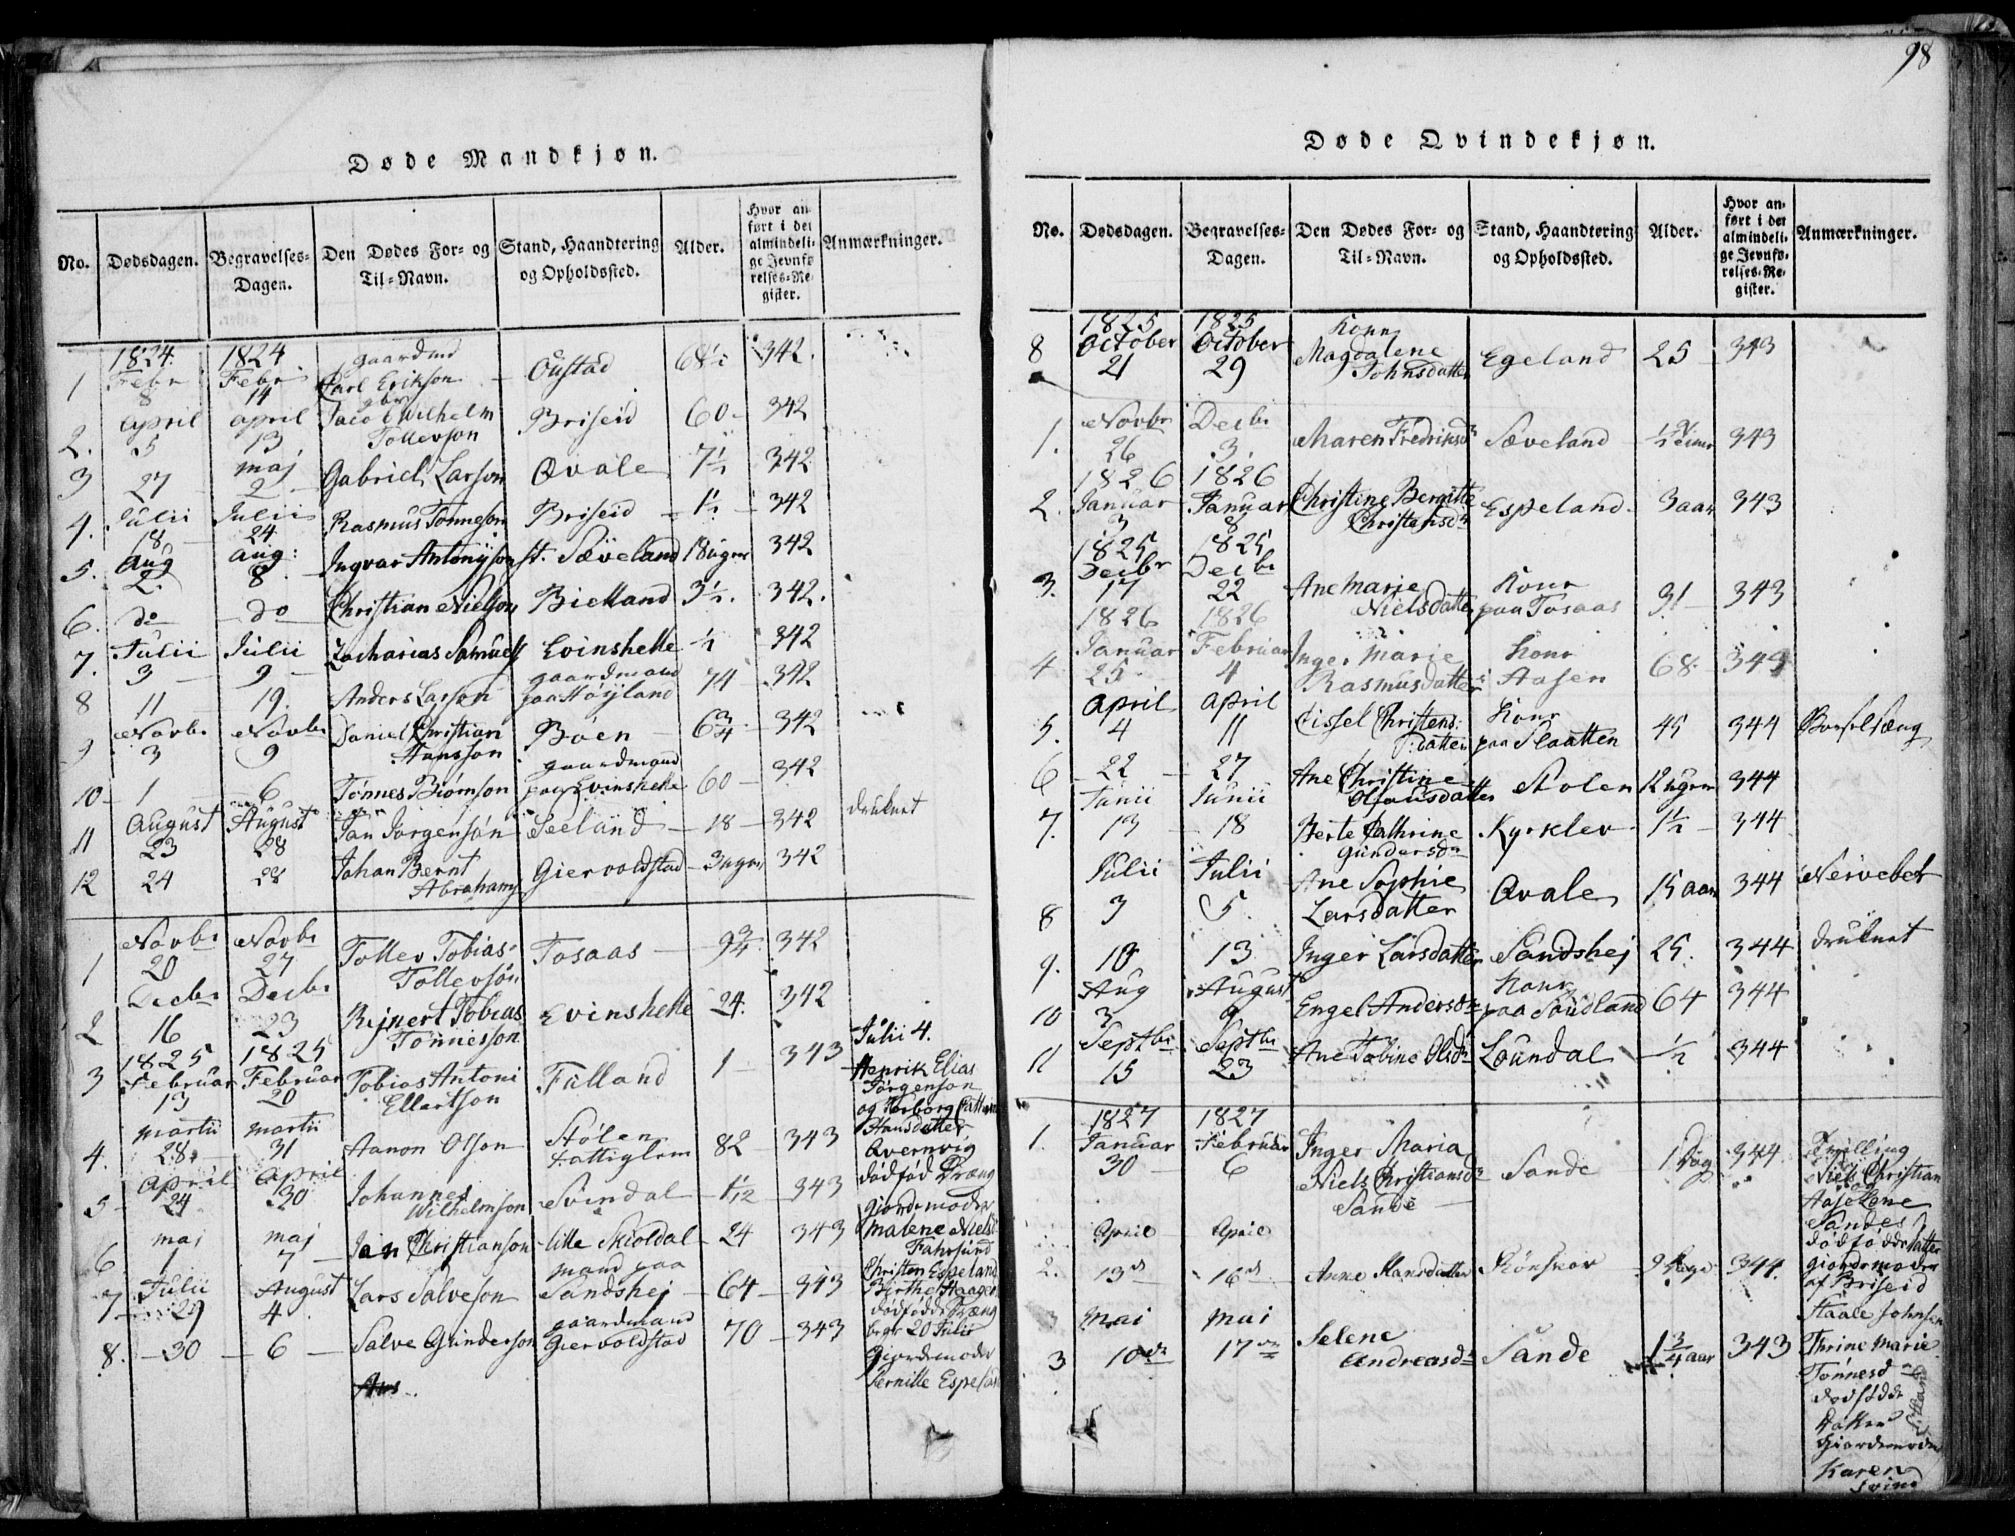 98
Døde Mandkjøn.
No. Dødsdagen. Begravelses-Dagen. Den Dødes For- og Til-Navn. Stand, Haandtering og Opholdssted. Alder. Hvor anført i det almindelige Jevnførelses-Register. Anmærkninger.
1 1824. Febr 8 1824 Febr 14 gaardmd Carl Erikson Oustad 68½ 342.
2. April 5 april 13 Jacob Wilhelm Tollevson Briseid 60 342
3 27 maj 2 Gabriel Larson Qvale 7½ 342
4. Julii 18 Julii 24 Rasmus Tønneson Briseid 1½ 342
5. Aug 2. aug: 8 Ingvar Antonÿson st. Sæveland 18 ugers 342
6. do do Christian Nielson Bielland 3½. 342.
7. Julii 3 Julii 9 Zacharias Samuels Evinshelle ½ 342
8 11 19. Anders Larson gaardmand paa Høÿland 74 342
9 Novbr 3 Novbr 9 Daniel Christian Hansson Bøen 6¾ 342
10 1 6 Tønnes Biømson gaardmand paa Evinshelle 60 342
11 August 23 August 28 Jan Jørgensøn Seeland 18 342 druknet
12 24 28 Johan Bernt Abrahams Giervoldstad 3 uger 342
1 Novbr 20 Novbr 27 Tollev Tobias Tollevsøn Tosaas 9¾ 342
2 Decbr 16 Decbr 23 Rejnert Tobias Tønnesson Evinshelle 24. 342
3 1825 Februar 13 1825 Februar 20 Tobias Antoni Ellertson Fulland 1 343
4. martii 28 martii 31 Aanon Olson Stølen Fattiglem 82 343
5 April 24 April 30 Johannes Wilhelmson Svindal 1/12 343
6 maj 1 maj 7 Jan Christianson lille Skioldal 24 343
7 Julii 29 August 4 Lars Salveson mand paa Sandshej 64 343
8. 30 6 Salve Gunderson gaardmand Giervoldstad 70 343
Julii 4.
Henrik Elias
Jørgenson
og
Hansdatter
Qvernvig
dødfød Dræng
giordemoder
Malene Niels
Fahrsund
Christen Espeland
Birthe Haagens
dødfødde Dræng
begr 20 Julii
Giordemoder
Pernille Espeland
Døde Qvindekjøn.
No. Dødsdagen. Begravelses-Dagen. Den Dødes For- og Til-Navn. Stand, Haandtering og Opholdssted. Alder. Hvor anført i det almindelige Jevnførelses-Register. Anmærkninger.
8 1825 October 21 1825 October 29 Konen Magdalene Johnsdatter Egeland 25 343
1. Novbr 26 Decbr 3. Maren Fredriksdr Sæveland ½ 343
2. 1826 Januar 3 1826 Januar 8 Christine Bergitte Christansdr Espeland 3 aar 343
3. 1825 Decbr 17 1825 Decbr 22 Ane Marie Nielsdatter Kone paa Tosaas 31 343
4 1826 Januar 25 1826 Februar 4 Inger Marie Rasmusdatter Kone i Aasen 68 343
5. April 4 April 11 Cissel Christensdatter Kone paa Slaatten 45 344 Barselsæng
6 22 27 Ane Christine Olhansdatter Stølen 12 uger 344
7. Junii 13 Junii 18 Berte Cathrine Gundersdr Kyrklev 1½ 344
8 Julii 3 Julii 5. Ane Sophie Larsdatter Qvale 15 aar 344 Nervefeber
9. 10 13 Inger Larsdatter Sandshej 25. 344 druknet
10 Aug 3 August 9 Engel Andersdr Kone paa Saudland 64 344
11 Septbr 15 Septbr 23 Ane Tobine Olsdr Loundal ½ 344
1. 1827 Januar 30 1827 Februar 6 Inger Maria Niels Christiansdr Sande Sande 1 Dag 344.
2. April 13de April 16de Anne Hansdatter 344.
3 Mai 10de Mai 17de Selene Andreasdr Sande 1¾ aar 343
Tvilling
Niels Christian
og
Aase Lene
Sandes
dødfødde datter
giordemoder
af Briseid
Staale Johnsen
Thrine Marie
Tønnesd
dødfødde
Datter
Giordemoder
Karen